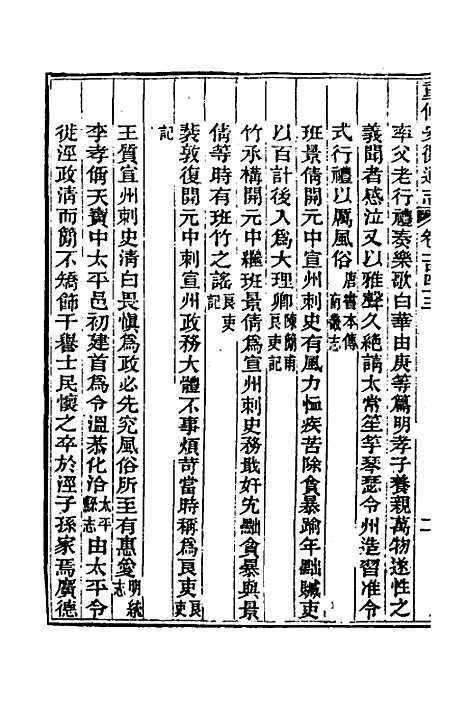 重修安徽通志 卷一百四十三 二
率父老行禮奏樂歌白華由庚等篇明孝子養親萬物遂性之
義聞者感泣又以雅聲久絕請太常笙竽琴瑟令州造習准令
式行禮以厲風俗唐書本傳南畿志
班景倩開元中宣州刺史有風力恤疾苦除貪暴踰年黜贓吏
以百計後入爲大理卿陳簡甫良吏記
竹承構開元中繼班景倩爲宣州刺史務敢奸宄黜貪暴與景
倩等時有班竹之謠良吏記
裴敦復開元中刺宣州政務大體不事煩苛當時稱爲良吏良吏
記
王質宣州刺史清白畏愼爲政必先究風俗所至有惠愛明統志
李孝俌天寶中太平邑初建首爲令溫恭化洽太平縣志由太平令
徙涇政清而簡不矯飾干譽士民懷之卒於涇子孫家焉廣德